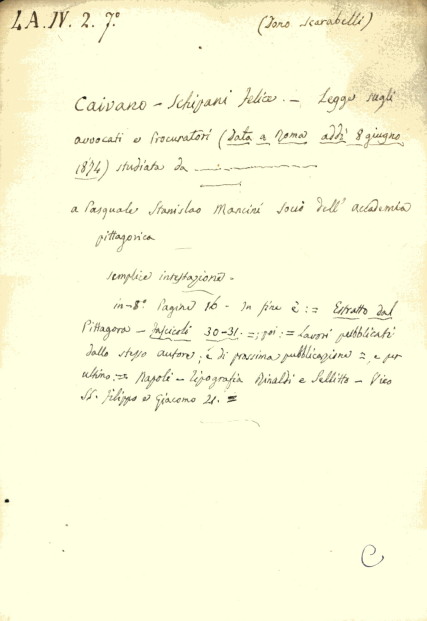 4.A.IV. 2. 7º (Dono Scarabelli)
Caivano - Schipani Felice. - Legge sugli
avvocati e Procuratori (data a Roma addì 8 giugno
1874) studiata da
a Pasquale Stanislao Mancini socio dell'accademia
pittagorica
semplice intestazione -
in-8º Pagine 16 - In fine è := Estratto dal
Pittagora - Fascicoli 30-31. =; poi: = Lavori pubblicati
dallo stesso autore; è di prossima pubblicazione =, e per
ultimo: = Napoli - Tipografia Rinaldi e Sellitto - Vico
SS. Filippo e Giacomo 21. =
C